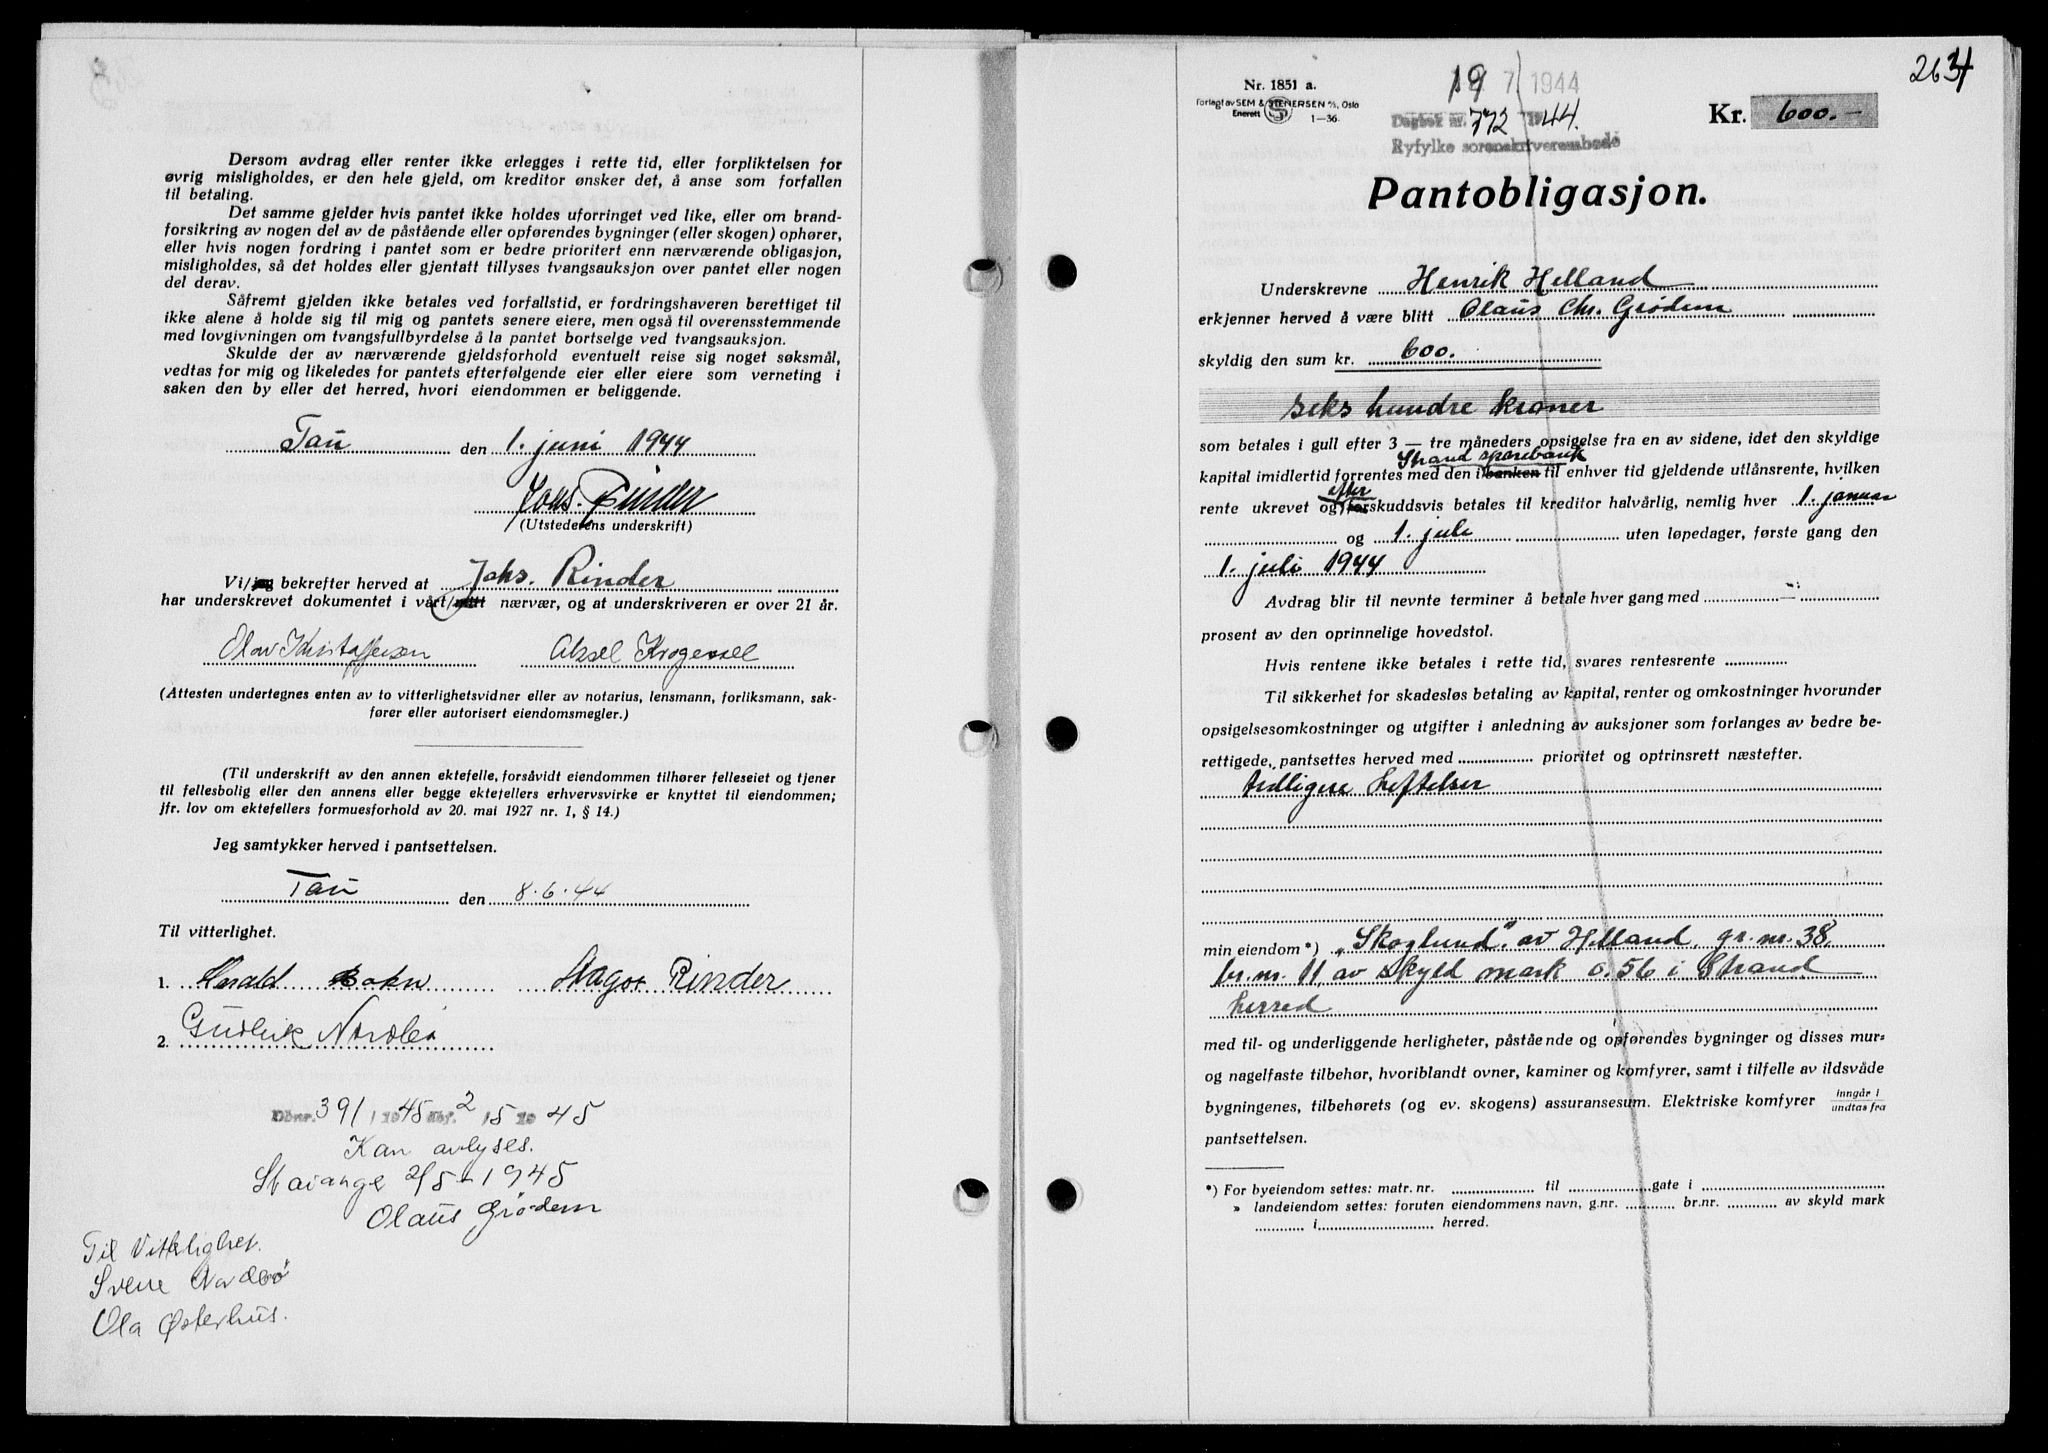 Dersom avdrag eller renter ikke erlegges i rette tid, eller forpliktelsen for
øvrig misligholdes, er den hele gjeld, om kreditor ønsker det, å anse som forfallen
til betaling.
Det samme gjelder hvis pantet ikke holdes uforringet ved like, eller om brand-
forsikring av nogen del av de påstående eller opførendes bygninger (eller skogen) ophører,
eller hvis nogen fordring i pantet som er bedre prioritert enn nærværende obligasjon,
misligholdes, så det holdes eller gjentatt tillyses tvangsauksjon over pantet eller nogen
del derav.
Såfremt gjelden ikke betales ved forfallstid, er fordringshaveren berettiget til
ikke alene å holde sig til mig og pantets senere eiere, men også til overensstemmende
med lovgivningen om tvangsfullbyrdelse å la pantet bortselge ved tvangsauksjon.
Skulde der av nærværende gjeldsforhold eventuelt reise sig noget søksmål,
vedtas for mig og likeledes for pantets efterfølgende eier eller eiere som verneting i
saken den by eller det herred, hvori eiendommen er beliggende.
Tau den 1. juni 1944
Johs. Rinder
(Utstederens underskrift)
Vi/jeg bekrefter herved at Johs. Rinder
har underskrevet dokumentet i vårt/mitt nærvær, og at underskriveren er over 21 år.
Olav Kristoffersen Aksel Krogevoll
(Attesten undertegnes enten av to vitterlighetsvidner eller av notarius, lensmann, forliksmann, sak-
fører eller autorisert eiendomsmegler.)
(Til underskrift av den annen ektefelle, forsåvidt eiendommen tilhører felleseiet og tjener
til fellesbolig eller den annens eller begge ektefellers erhvervsvirke er knyttet til eiendommen;
jfr. lov om ektefellers formuesforhold av 20. mai 1927 nr. 1, § 14.)
Jeg samtykker herved i pantsettelsen.
Tau den 8.6.44
Til vitterlighet.
1. Harald Rinder
2. Gudleik
Dbnr. 391 / 1945 Abf. 2 / 5 1945
Kan avlyses.
Stavanger 2/5-1945
Olaus Grødem
Til Vitterlighet.
Sverre Nordbø
Ola Østerhus.
263
Nr. 1851 a.
Forlagt av SEM & STENERSEN A/S, Oslo
Enerett S 1—36.
19 7 1944
Dagbok nr. 772 1944.
Ryfylke sorenskriverembede
Kr. 600.-
Pantobligasjon.
Underskrevne Henrik Helland
erkjenner herved å være blitt Olaus Chr. Grødem
skyldig den sum kr. 600.
seks hundre kroner
som betales i gull efter 3 — tre måneders opsigelse fra en av sidene, idet den skyldige
Strand sparebank
kapital imidlertid forrentes med den i banken til enhver tid gjeldende utlånsrente, hvilken
efter
rente ukrevet og forskuddsvis betales til kreditor halvårlig, nemlig hver 1. januar
og 1. juli uten løpedager, første gang den
1. juli 1944
Avdrag blir til nevnte terminer å betale hver gang med -
prosent av den oprinnelige hovedstol.
Hvis rentene ikke betales i rette tid, svares rentesrente
Til sikkerhet for skadesløs betaling av kapital, renter og omkostninger hvorunder
opsigelsesomkostninger og utgifter i anledning av auksjoner som forlanges av bedre be-
rettigede, pantsettes herved med prioritet og optrinsrett næstefter.
tidligere heftelser
min eiendom*) "Skoglund" av Helland, gr. nr. 38,
br. nr. 11, av skyld mark 0.56 i Strand
herred
med til- og underliggende herligheter, påstående og opførendes bygninger og disses mur-
og nagelfaste tilbehør, hvoriblandt ovner, kaminer og komfyrer, samt i tilfelle av ildsvåde
bygningenes, tilbehørets (og ev. skogens) assuransesum. Elektriske komfyrer inngår i / undtas fra
pantsettelsen.
*) For byeiendom settes: matr. nr. til gate i
» landeiendom settes: foruten eiendommens navn, g.nr. br.nr. av skyld mark
i herred.